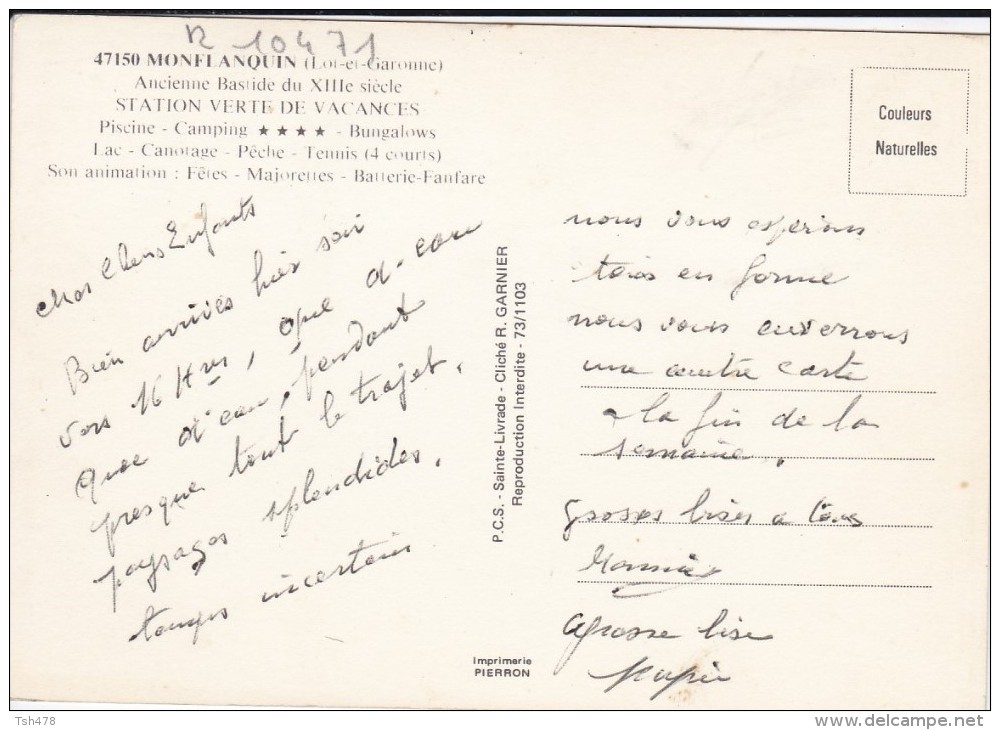 R 10471
47150 MONFLANQUIN (Lot-et-Garonne)
Ancienne Bastide du XIIIe siècle
STATION VERTE DE VACANCES
Piscine - Camping ★★★★ - Bungalows
Lac - Canotage - Pêche - Tennis (4 courts)
Son animation : Fêtes - Majorettes - Batterie-Fanfare
Couleurs
Naturelles
Chers Enfants
Bien arrivés hier soir
vers 16 Hres, que d'eau
que d'eau, pendant
presque tout le trajet.
paysages splendides.
temps incertain
P.C.S. - Sainte-Livrade - Cliché R. GARNIER
Reproduction Interdite - 73/1103
Imprimerie
PIERRON
nous vous esperons
tous en forme
nous vous enverrons
une autre carte
a la fin de la
semaine.
grosses bises a tous
Mamie
grosse bise
papie
Tsh478
delcampe.net